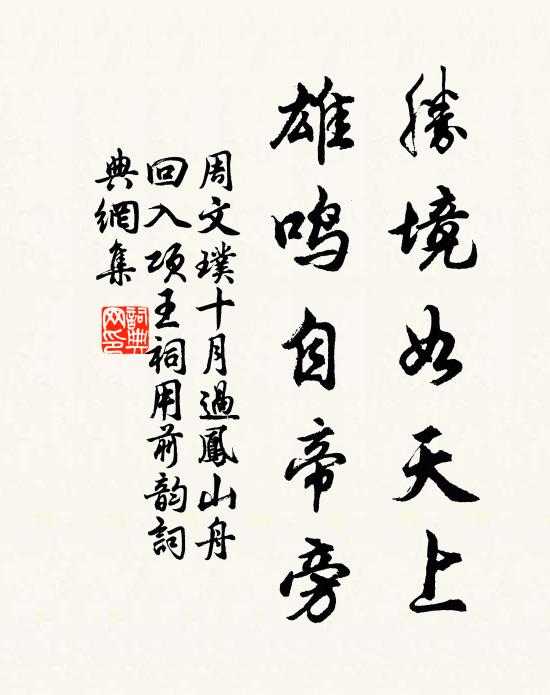 勝境如天上
雄鸣自帝旁
周文璞十月過鳳山舟
回入项王祠用前韵詞
典網集
詞典网印